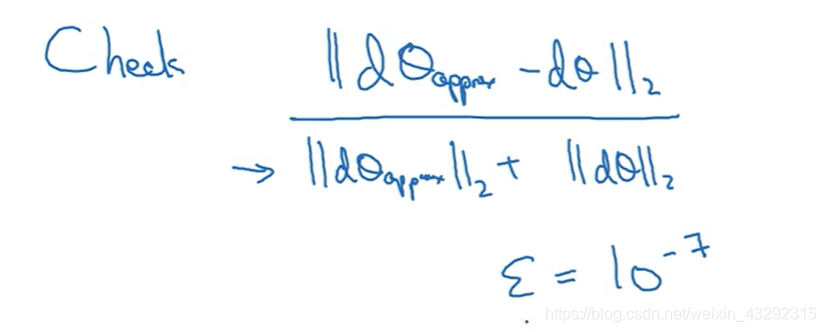 Check ||dθapprox - dθ||₂
→ ||dθapprox||₂ + ||dθ||₂
ε = 10⁻⁷
https://blog.csdn.net/weixin_43292315